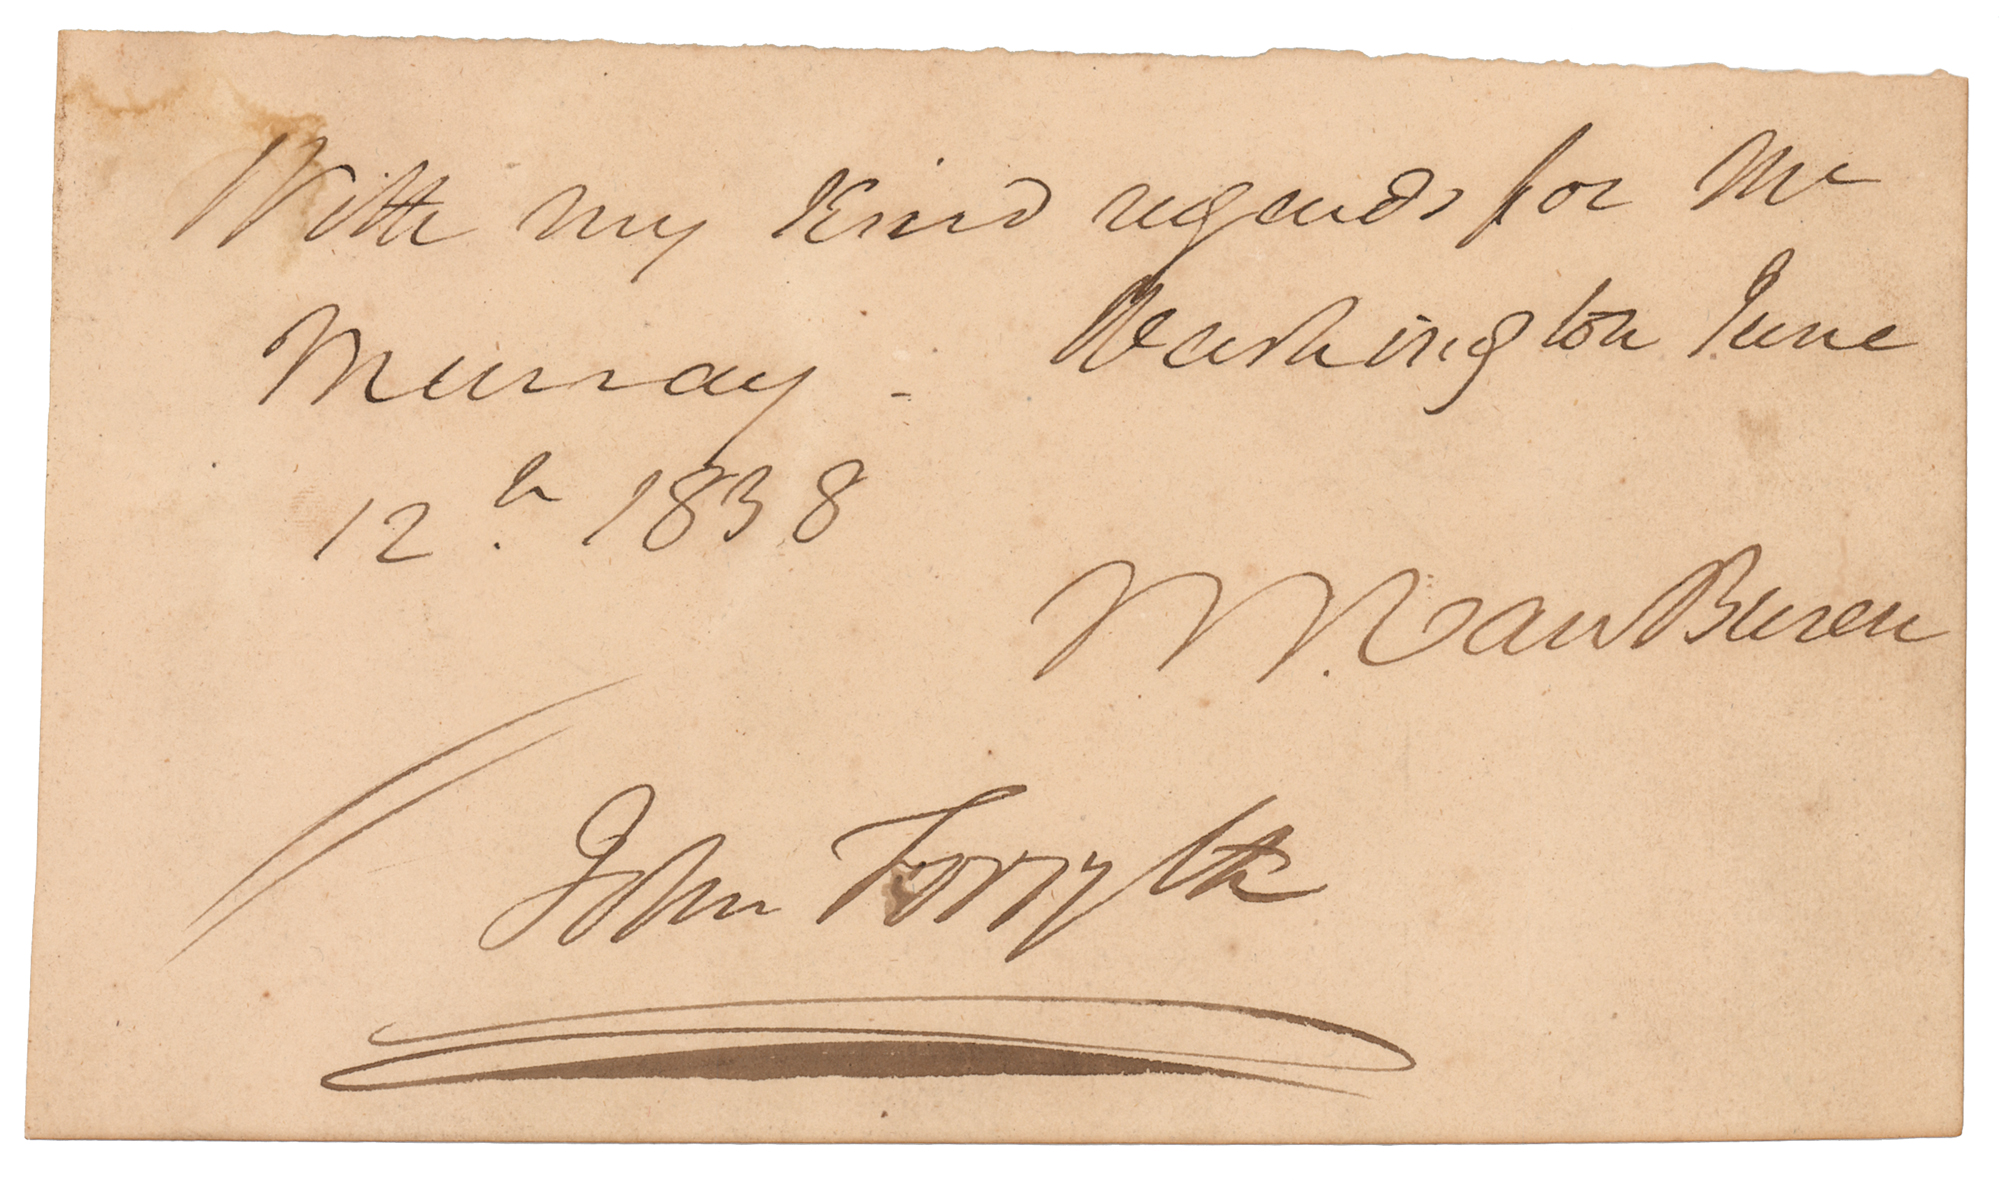 With my kind regards for Mr
Murray - Washington June
12th 1838
M. Van Buren
John Forsyth